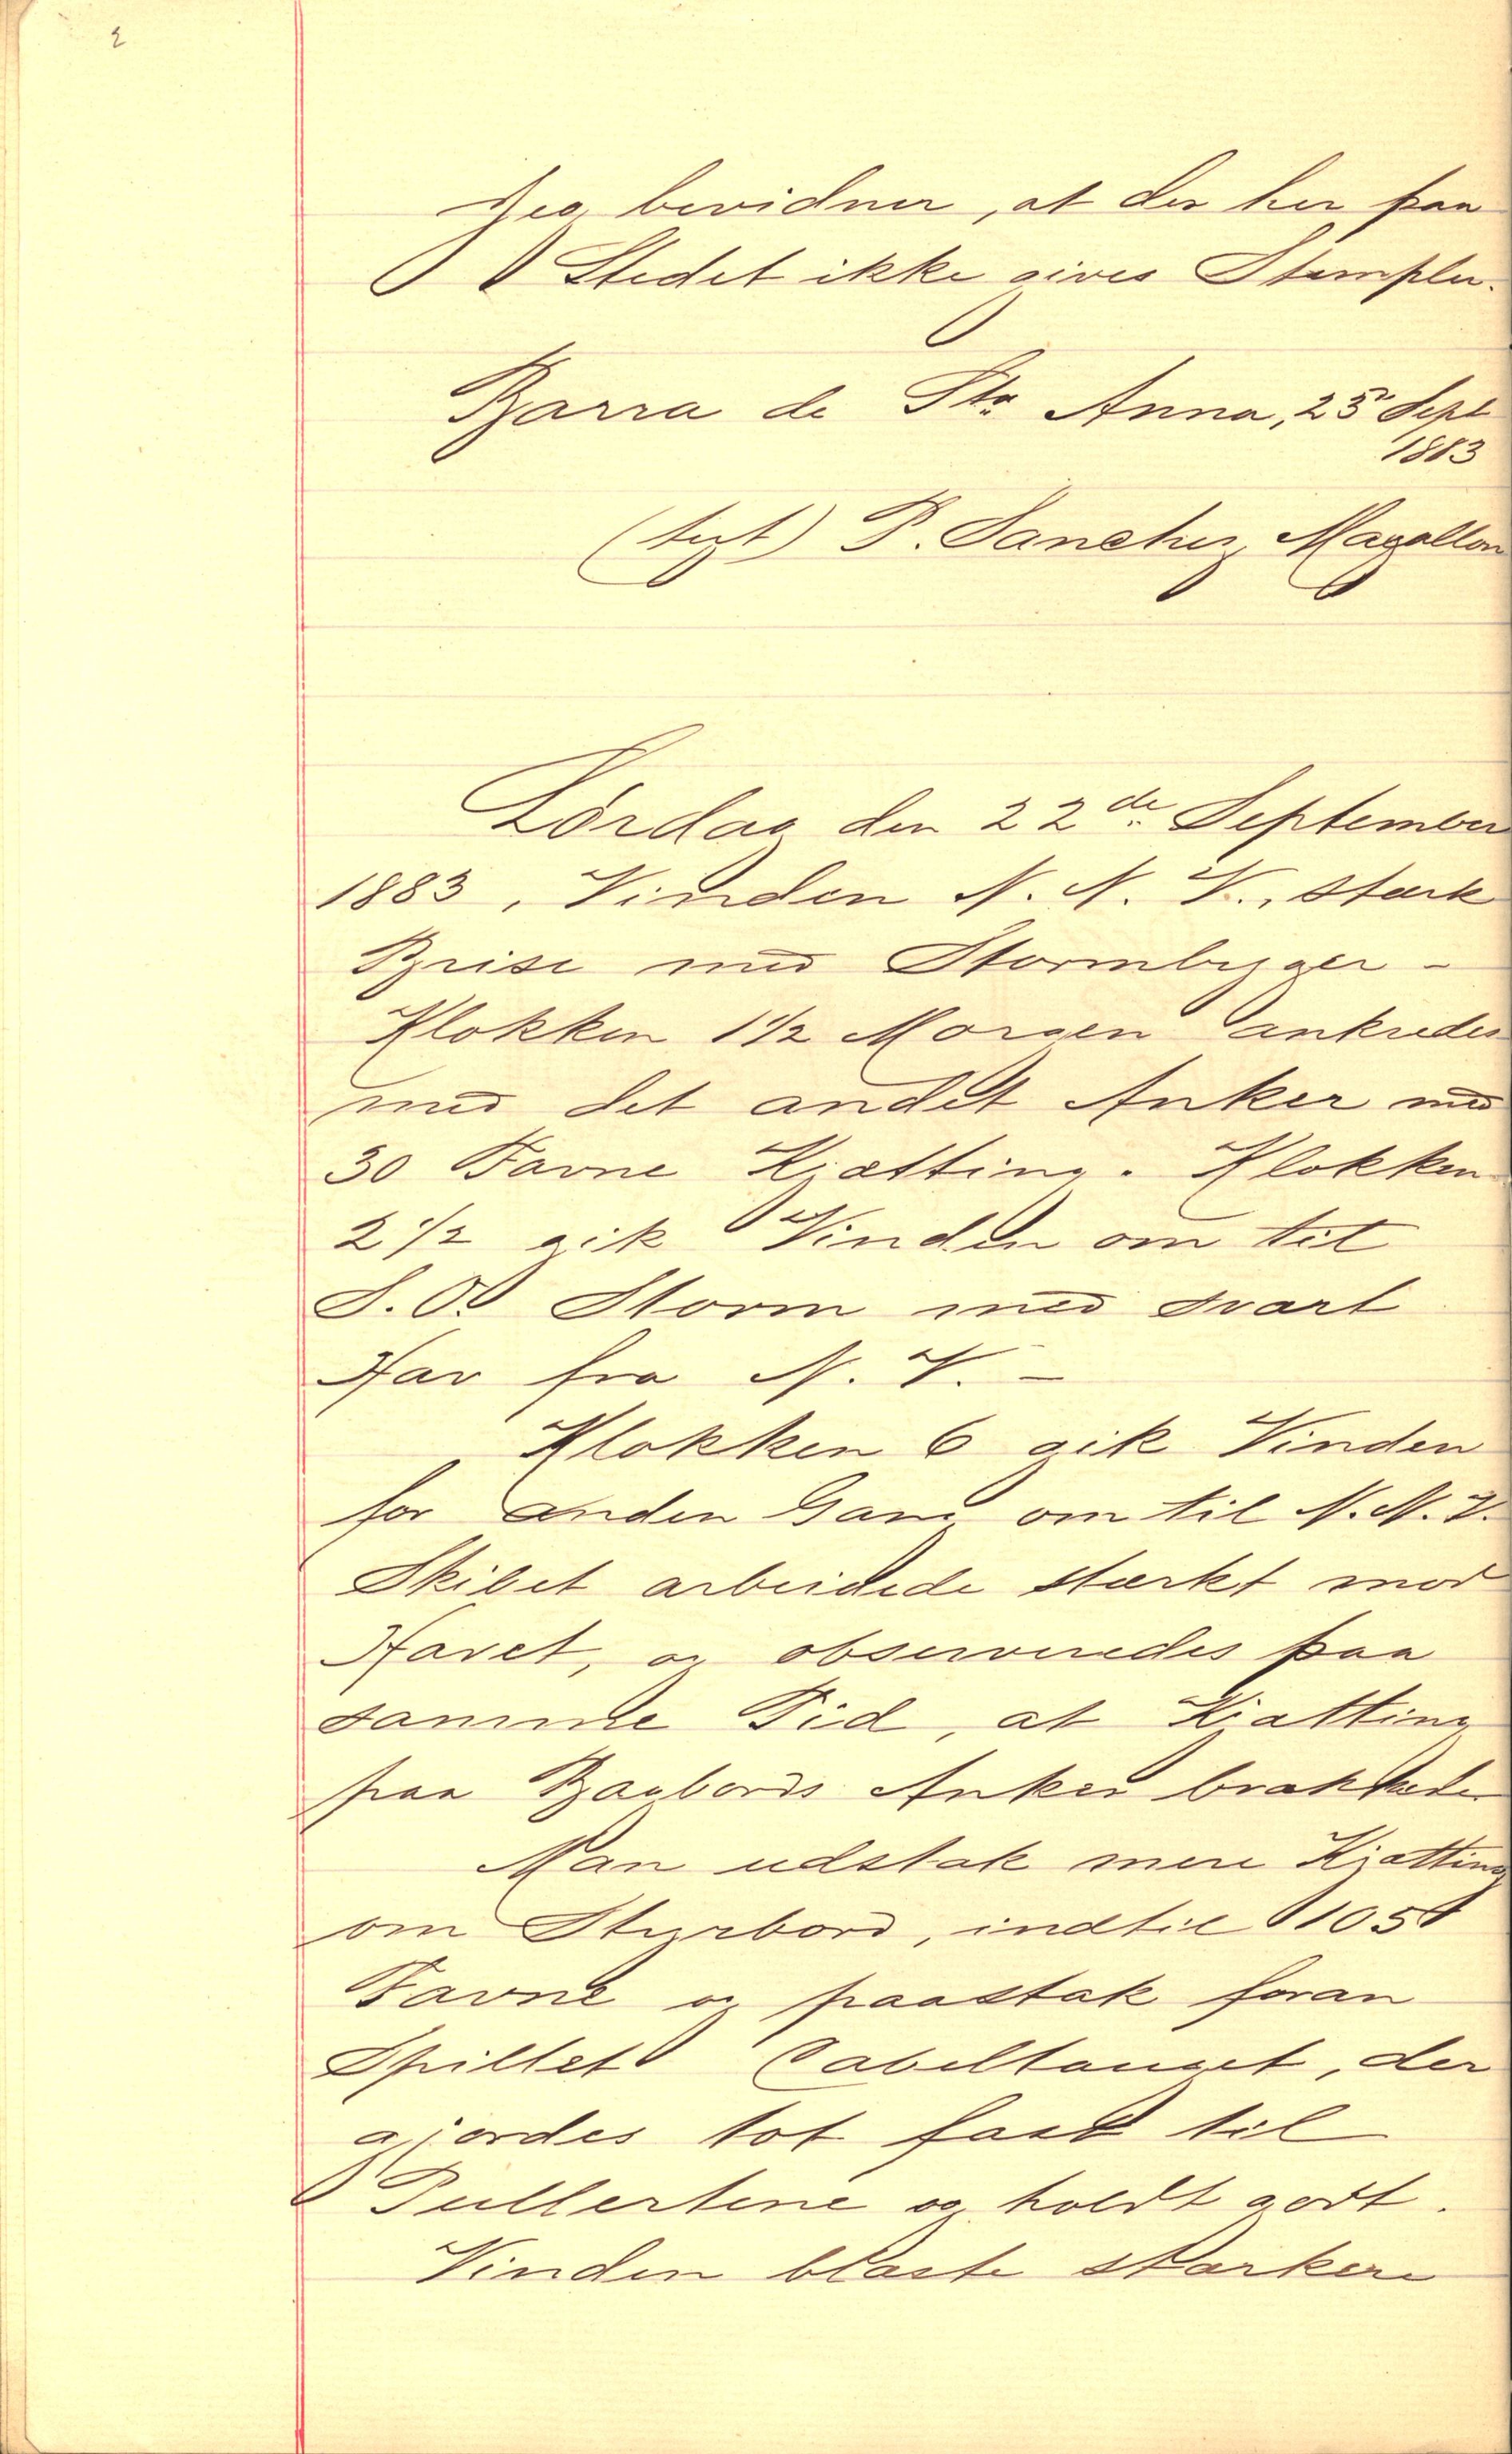 2
Jeg bevidner, at der her paa
Stedet ikke gives Stempler.
Barra de Sta Anna, 25 Sept
1883
(tegt) P. Sanchez Magallon
Lørdag den 22de September
1883, Vinden N. N. V., stærk
Brise med Stormbyger -
Klokken 1 1/2 Morgen ankredes
med det andet Anker med
30 Favne Kjætting. Klokken
2 1/2 gik Vinden om til
S. O. Storm med svært
Hav fra N. V. -
Klokken 6 gik Vinden
for anden Gang om til N. N. V.
Skibet arbeidede stærkt mod
Havet, og observeredes paa
samme Tid, at Kjætting
paa Bagbords Anker brækkede
Man udstak mere Kjætting
om Styrbord, indtil 105
Favne og paastak foran
Spillet Cabeltauget, der
gjordes tot fast til
Pullertene og holdt godt.
Vinden blæste stærkere